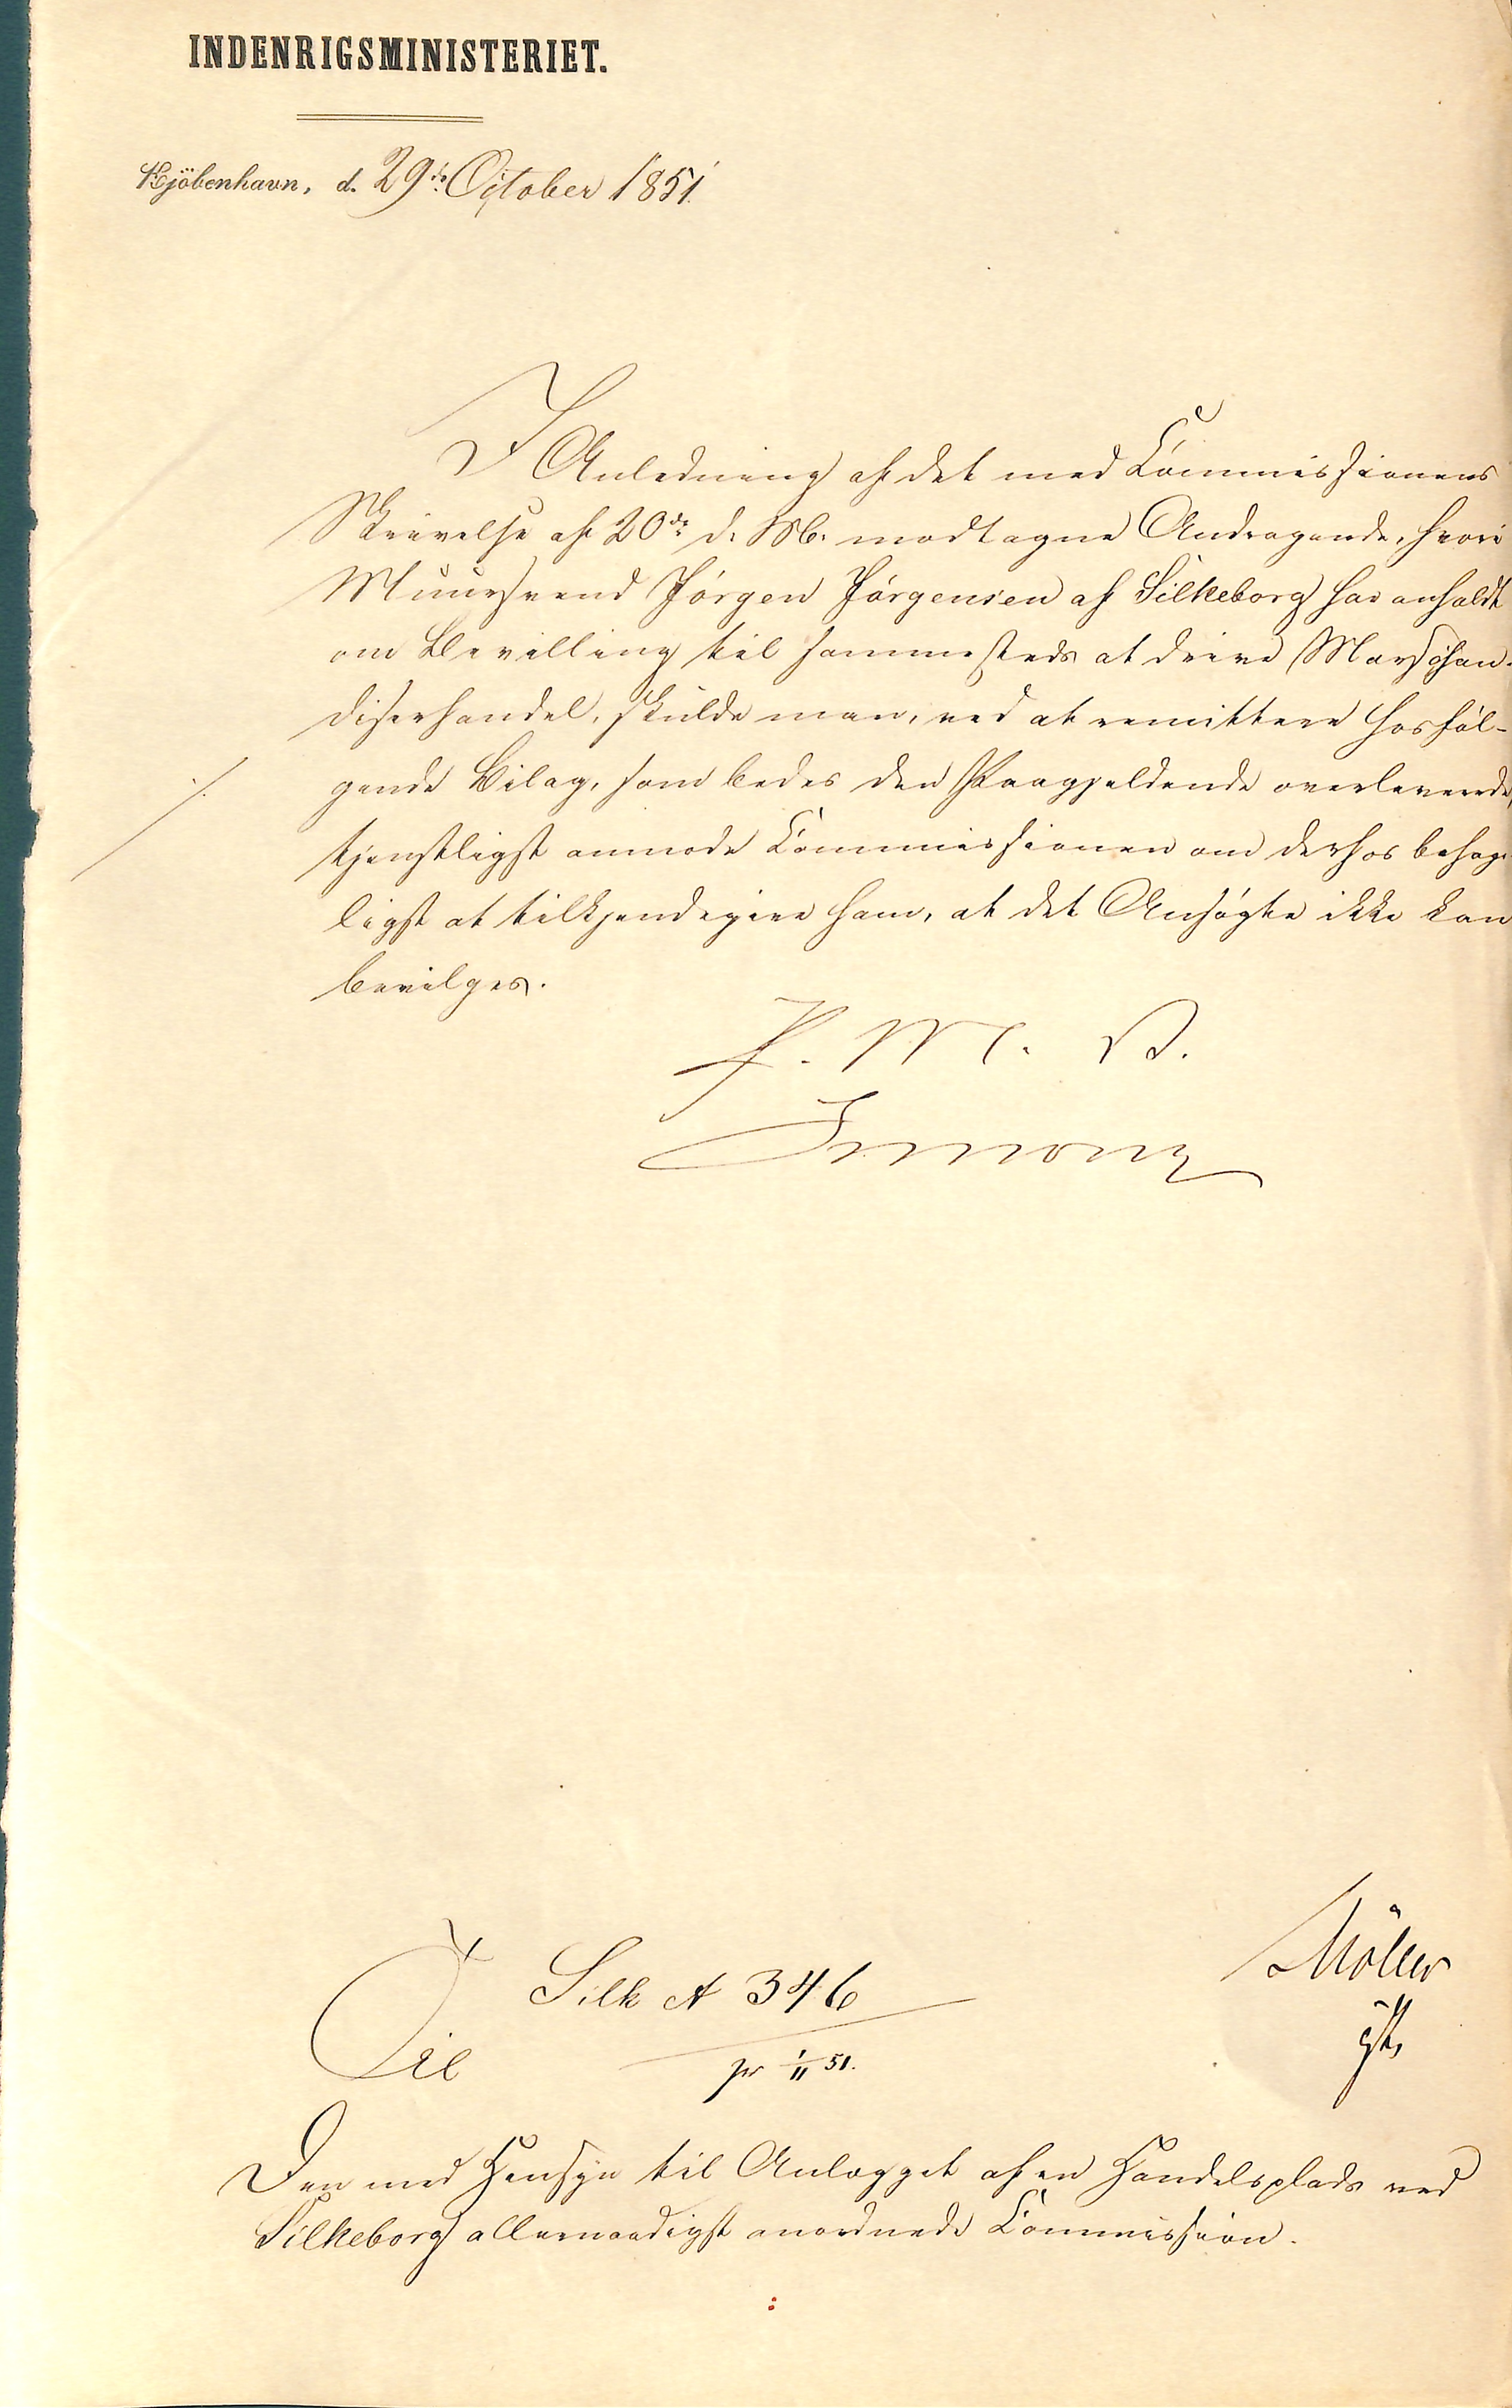 INDENRIGSMINISTERIET.
Kjöbenhavn, d. 29de October 1851.
I Anledning af det med Commissionens
Skrivelse af 20de d. M. modtagne Andragende, hvori
Muursvend Jörgen Jörgensen af Silkeborg har anholdt
om Bevilling til sammesteds at drive Marschan-
diserhandel, skulde man, ved at remittere hosföl-
gende Bilag, som bedes den Paagjeldende overleverede,
./.
tjenstligst anmode Commissionen om derhos behage-
ligst at tilkjendegive ham, at det Ansögte ikke kan
bevilges.
F. M. B.
Simony
Silk A 346
pr 1/11 51.
Möller
Til
Den med Hensyn til Anlægget af en Handelsplads ved
Silkeborg allernaadigst anordnede Commission.